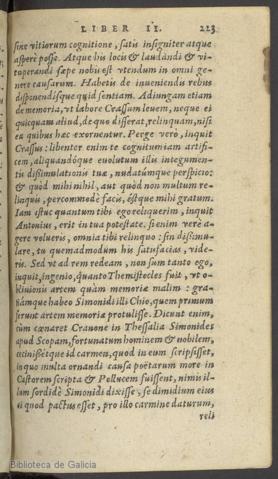 LIBER II. 223
sine vitiorum cognitione, satis insigniter atque
asperè posse. Atque his locis & laudandi & vi-
tuperandi sæpe nobis est vtendum in omni ge-
nere causarum. Habetis de inueniendis rebus
disponendisque quid sentiam. Adiungam etiam
de memoria, vt labore Crassum leuem, neque ei
quicquam aliud, de quo disserat, relinquam, nisi
ea quibus hæc exornentur. Perge verò, inquit
Crassus: libenter enim te cognitum iam artifi-
cem, aliquandóque euolutum illis integumen-
tis dissimulationis tuæ, nudatúmque perspicio:
& quòd mihi nihil, aut quòd non multum re-
linquis, percommodè facis, éstque mihi gratum.
Iam istuc quantum tibi ego reliquerim, inquit
Antonius, erit in tua potestate. si enim verè a-
gere volueris, omnia tibi relinquo: sin dissimu-
lare, tu quemadmodum his satisfacias, vide-
ris. Sed vt ad rem redeam, non sum tanto ego,
inquit, ingenio, quanto Themistocles fuit, vt o-
bliuionis artem quàm memoriæ malim: gra-
tiámque habeo Simonidi illi Chio, quem primum
ferunt artem memoriæ protulisse. Dicunt enim,
cùm cœnaret Cranone in Thessalia Simonides
apud Scopam, fortunatum hominem & nobilem,
cecinissétque id carmen, quod in eum scripsisset,
in quo multa ornandi causa poëtarum more in
Castorem scripta & Pollucem fuissent, nimis il-
lum sordidè Simonidi dixisse, se dimidium eius
ei quod pactus esset, pro illo carmine daturum,
reli
Biblioteca de Galicia